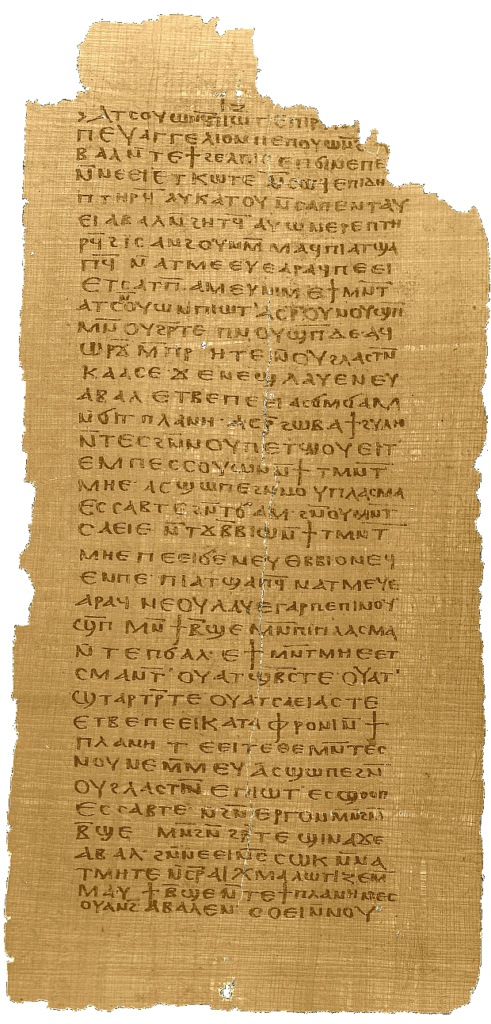 ϩⲁⲧⲥⲟⲩⲱⲛ ⲡⲓⲱⲧ ⲉⲡⲓⲣ
ⲡⲉⲩⲁⲅⲅⲉⲗⲓⲟⲛ ⲡⲉ ⲡⲟⲩⲱⲛ̅ϩ
ⲃⲁⲗ ⲛ̅ⲧⲉ ϯϩⲉⲗⲡⲓⲥ ⲉⲡϭⲓⲛⲉ ⲡⲉ
ⲛ̅ⲛⲉⲉⲓ ⲉⲧⲕⲱⲧⲉ ⲛ̅ⲥⲱϥ ⲉⲡⲓⲇⲏ
ⲡⲧⲏⲣϥ̅ ⲁⲩⲕⲁⲧⲟⲩ ⲛ̅ⲥⲁ ⲡⲉⲛⲧⲁⲩ
ⲉⲓ ⲁⲃⲁⲗ ⲛ̅ϩⲏⲧϥ̅ ⲁⲩⲱ ⲛⲉⲣⲉ ⲡⲧⲏ
ⲣϥ̅ ϩⲓ ⲥⲁⲛϩⲟⲩⲛ ⲙ̅ⲙⲁϥ ⲡⲓⲁⲧϣⲁ
ⲡϥ̅ ⲛ̅ⲁⲧⲙⲉⲩⲉ ⲁⲣⲁϥ ⲡⲉⲉⲓ
ⲉⲧⲥⲁⲧⲡ ⲁⲙⲉⲩ ⲛⲓⲙ ⲉϯⲙⲛ̅ⲧ
ⲁⲧⲥⲟⲩⲱⲛ ⲡⲓⲱⲧ ⲁⲥⲣ̅ ⲟⲩⲛⲟⲩϣⲡ̅
ⲙⲛ̅ ⲟⲩϩⲣ̅ⲧⲉ ⲡⲛⲟⲩϣⲡ̅ ⲇⲉ ⲁϥ
ⲱⲣϫ̅ ⲙ̅ⲡⲣⲏⲧⲉ ⲛ̅ⲟⲩϩⲗⲁⲥⲧⲛ̅
ⲕⲁⲁⲥⲉ ϫⲉ ⲛⲉϣ ⲗⲁⲩⲉ ⲛⲉⲩ
ⲁⲃⲁⲗ ⲉⲧⲃⲉ ⲡⲉⲉⲓ ⲁⲥϭⲙ̅ϭⲁⲙ
ⲛ̅ϭⲓ ⲧⲡⲗⲁⲛⲏ ⲁⲥⲣ̅ ϩⲱⲃ ⲁϯϩⲩⲗⲏ
ⲛ̅ⲧⲉⲥ ϩⲛ̅ⲛ ⲟⲩⲡⲉⲧϣⲟⲩⲉⲓⲧ
ⲉⲙⲡⲉⲥⲥⲟⲩⲱⲛ ⲛ̅ϯⲙⲛ̅ⲧ
ⲙⲏⲉ ⲁⲥϣⲱⲡⲉ ϩⲛ̅ⲛ ⲟⲩⲡⲗⲁⲥⲙⲁ
ⲉⲥⲥⲁⲃⲧⲉ ϩⲛ̅ ⲧϭⲁⲙ ϩⲛ̅ ⲟⲩⲙⲛ̅ⲧ
ⲥⲁⲉⲓⲉ ⲛ̅ⲧϫⲃ̅ⲃⲓⲱ ⲛ̅ϯⲧⲙⲛ̅ⲧ
ⲙⲏⲉ ⲡⲉⲉⲓ ϭⲉ ⲛⲉⲩⲑⲃ̅ⲃⲓⲟ ⲛⲉϥ
ⲉⲛ ⲡⲉ ⲡⲓⲁⲧϣⲁⲡϥ̅ ⲛ̅ⲁⲧⲙⲉⲩⲉ
ⲁⲣⲁϥ ⲛⲉⲟⲩⲗⲁⲩⲉ ⲅⲁⲣ ⲡⲉ ⲡⲓⲛⲟⲩ
ϣⲡ̅ ⲙⲛ̅ ϯⲃ̅ϣⲉ ⲙⲛ̅ ⲡⲓⲡⲗⲁⲥⲙⲁ
ⲛ̅ⲧⲉ ⲡϭⲁⲗ ⲉϯⲙⲛ̅ⲧⲙⲏⲉ ⲉⲧ
ⲥⲙⲁⲛⲧ ⲟⲩⲁⲧϣⲃ̅ⲧⲥ̅ ⲧⲉ ⲟⲩⲁⲧ
ϣⲧⲁⲣⲧⲣ̅ ⲧⲉ ⲟⲩⲁⲧⲥⲁⲉⲓⲁⲥ ⲧⲉ
ⲉⲧⲃⲉ ⲡⲉⲉⲓ ⲕⲁⲧⲁⲫⲣⲟⲛⲓ ⲛ̅ϯ
ⲡⲗⲁⲛⲏ ⲧⲉⲉⲓ ⲧⲉ ⲑⲉ ⲙⲛ̅ⲧⲉⲥ
ⲛⲟⲩⲛⲉ ⲙ̅ⲙⲉⲩ ⲁⲥϣⲱⲡⲉ ϩⲛ̅
ⲟⲩϩⲗⲁⲥⲧⲛ̅ ⲉⲡⲓⲱⲧ ⲉⲥϣⲟⲟⲡ
ⲉⲥⲥⲁⲃⲧⲉ ⲛ̅ϩⲛ̅ⲉⲣⲅⲟⲛ ⲙⲛ̅ ϩⲛ̅
ⲃ̅ϣⲉ ⲙⲛ̅ ϩⲛ̅ϩⲣ̅ⲧⲉ ϣⲓⲛⲁ ϫⲉ
ⲁⲃⲁⲗ ϩⲛ̅ ⲛⲉⲉⲓ ⲛ̅ⲥⲥⲱⲕ ⲛ̅ⲛⲁ
ⲧⲙⲏⲧⲉ ⲛ̅ⲥⲣ̅ ⲁⲓⲭⲙⲁⲗⲱⲧⲓⲍⲉ ⲙ̅
ⲙⲁⲩ ϯⲃ̅ϣⲉ ⲛ̅ⲧⲉ ϯⲡⲗⲁⲛⲏ ⲛⲉⲥ
ⲟⲩⲁⲛϩ̅ ⲁⲃⲁⲗ ⲉⲛ ⲥⲟⲉⲓ ⲛ̅ⲛⲟⲩ